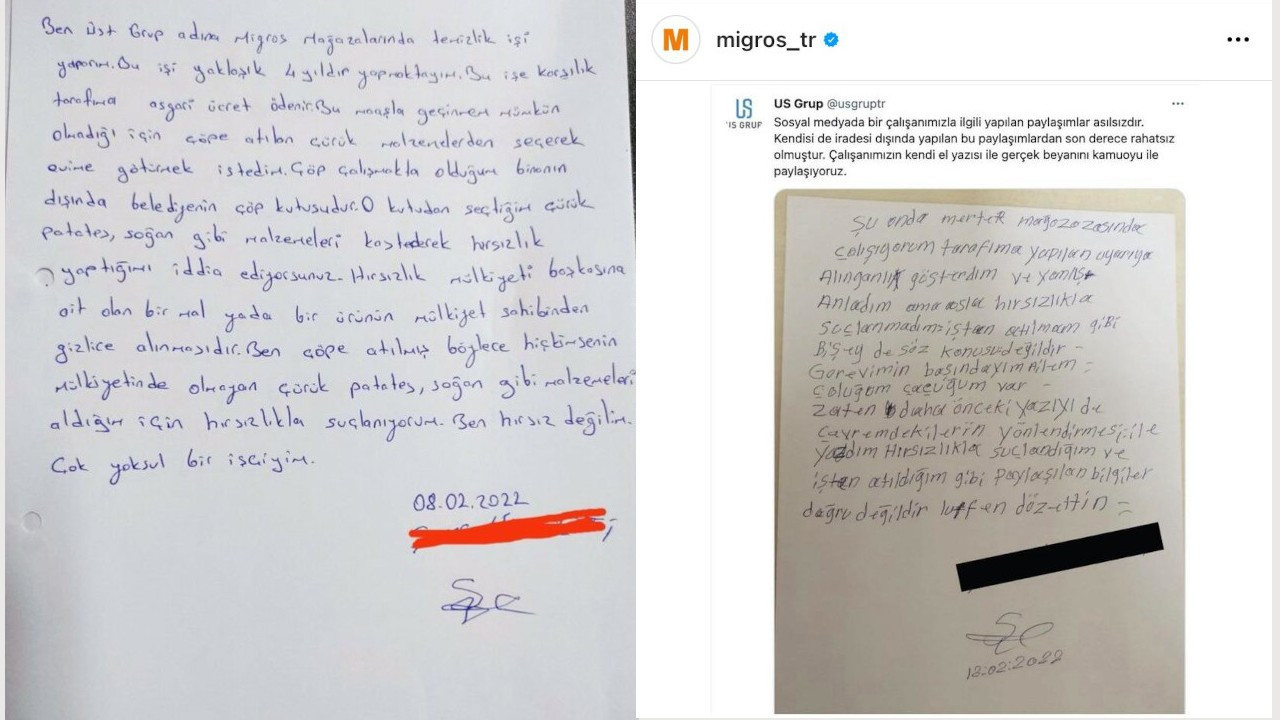 Ben Üst Grup adına Migros Mağazalarında temizlik işi
yaparım. Bu işi yaklaşık 4 yıldır yapmaktayım. Bu işe karşılık
tarafıma asgari ücret ödenir. Bu maaşla geçinmem mümkün
olmadığı için çöpe atılan çürük malzemelerden seçerek
evime götürmek istedim. Çöp çalışmakta olduğum binanın
dışında belediyenin çöp kutusudur. O kutudan seçtiğim çürük
patates, soğan gibi malzemeleri kastederek hırsızlık
yaptığımı iddia ediyorsunuz. Hırsızlık mülkiyeti başkasına
ait olan bir mal yada bir ürünün mülkiyet sahibinden
gizlice alınmasıdır. Ben çöpe atılmış böylece hiçbirsenin
mülkiyetinde olmayan çürük patates, soğan gibi malzemeleri
aldığım için hırsızlıkla suçlanıyorum. Ben hırsız değilim.
Çok yoksul bir işçiyim.
08.02.2022
M migros_tr
US
US GRUP
US Grup @usgruptr
Sosyal medyada bir çalışanımızla ilgili yapılan paylaşımlar asılsızdır.
Kendisi de iradesi dışında yapılan bu paylaşımlardan son derece rahatsız
olmuştur. Çalışanımızın kendi el yazısı ile gerçek beyanını kamuoyu ile
paylaşıyoruz.
Şu anda mertek mağozozasında
çalışıyorum tarafıma yapılan uyarıya
Alınganlık gösterdim ve yanlış
Anladım ama asla hırsızlıkla
suçlanmadım işten atılmam gibi
Bişey de söz konusu değildir -
Görevimin başındayım Ailem =
çoluğum çocuğum var -
Zaten daha önceki yazıyı de
çevremdekilerin yönlendirmesi ile
yazdım Hırsızlıkla suçlandığım ve
işten atıldığım gibi paylaşılan bilgiler
doğru değildir lutfen dözettin =
18.02.2022